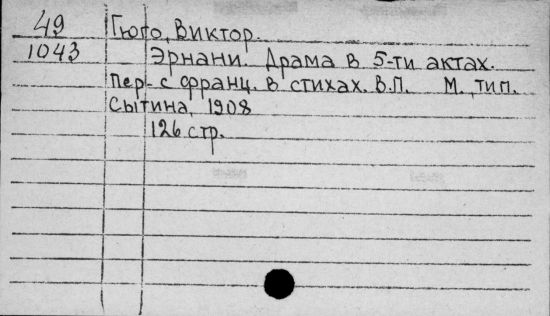 49 Гюго, Виктор.
1043 Эрнани. Драма в 5-ти актах.
Пер. с франц. в стихах. В.Л. М., тип.
Сытина, 1908
126 стр.